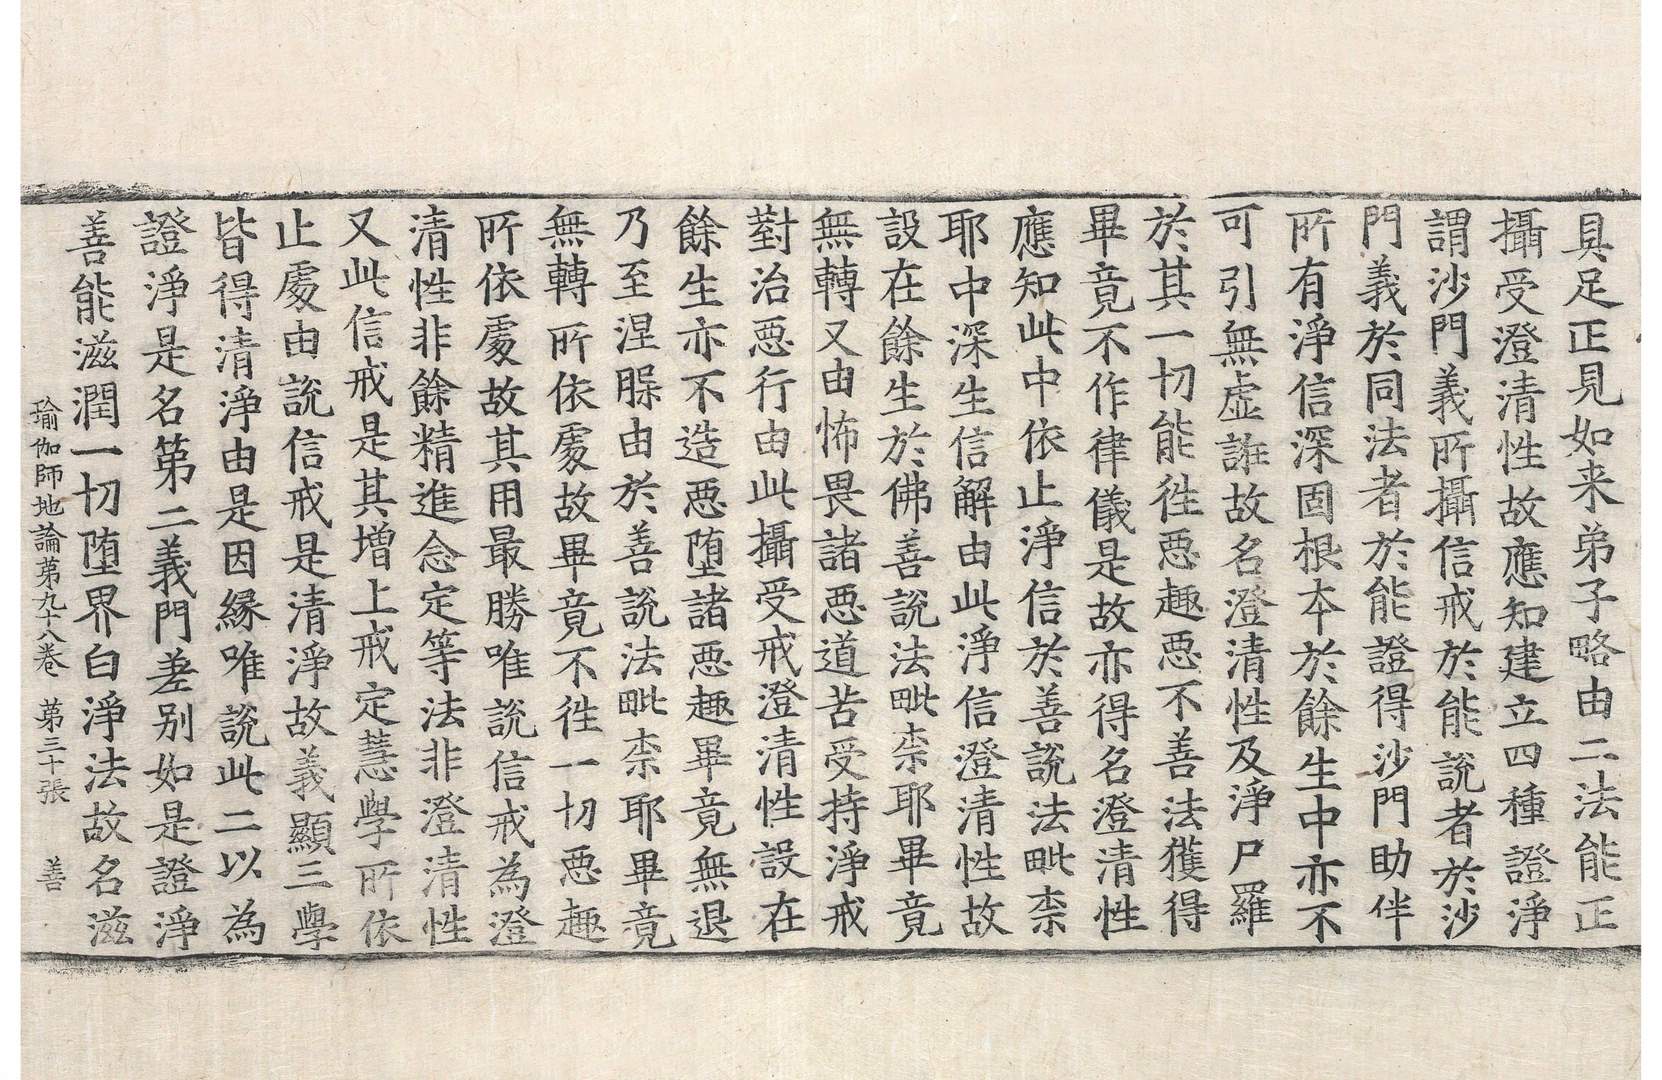 具足正見如来弟子略由二法能正
攝受澄清性故應知建立四種證淨
謂沙門義所攝信戒於能說者於沙
門義於同法者於能證得沙門助伴
所有淨信深固根本於餘生中亦不
可引無虛誑故名澄清性及淨尸羅
於其一切能徃惡趣惡不善法獲得
畢竟不作律儀是故亦得名澄清性
應知此中依止淨信於善說法毗柰
耶中深生信解由此淨信澄清性故
設在餘生於佛善說法毗柰耶畢竟
無轉又由怖畏諸惡道苦受持淨戒
對治惡行由此攝受戒澄清性設在
餘生亦不造惡墮諸惡趣畢竟無退
乃至涅槃由於善說法毗柰耶畢竟
無轉所依處故畢竟不徃一切惡趣
所依處故其用最勝唯說信戒為澄
清性非餘精進念定等法非澄清性
又此信戒是其增上戒定慧學所依
止處由說信戒是清淨故義顯三學
皆得清淨由是因緣唯說此二以為
證淨是名第二義門差別如是證淨
善能滋潤一切墮界白淨法故名滋
瑜伽師地論第九十八卷　第三十張　善